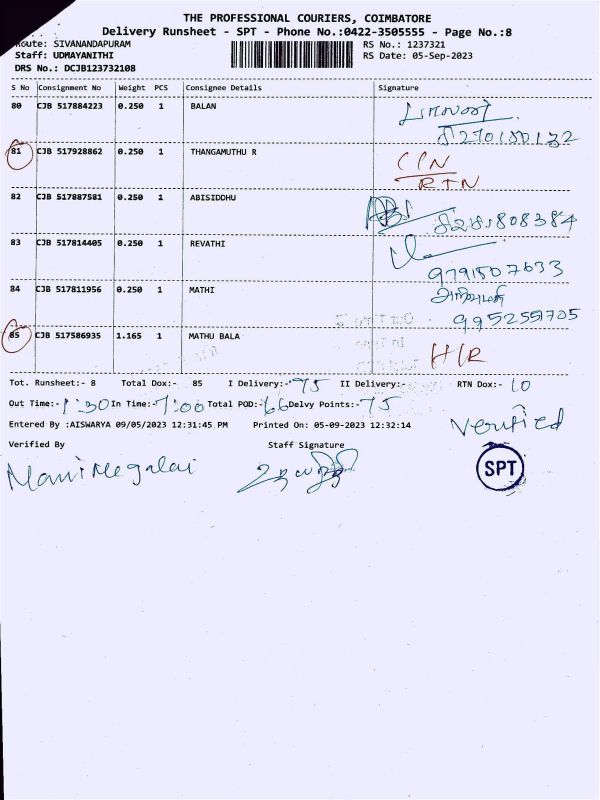 THE PROFESSIONAL COURIERS, COIMBATORE
Delivery Runsheet - SPT - Phone No.:0422-3505555 - Page No.:8
Route: SIVANANDAPURAM
RS No.: 1237321
Staff: UDMAYANITHI
RS Date: 05-Sep-2023
DRS No.: DCJB123732108
S No Consignment No Weight PCS Consignee Details Signature
80 CJB 517884223 0.250 1 BALAN
81 CJB 517928862 0.250 1 THANGAMUTHU R
RTN
82 CJB 517887581 0.250 1 ABISIDDHU
83 CJB 517814405 0.250 1 REVATHI
9791507633
84 CJB 517811956 0.250 1 MATHI
9952559705
85 CJB 517586935 1.165 1 MATHU BALA
Tot. Runsheet:- 8 Total Dox:- 85 I Delivery:- 75 II Delivery:- RTN Dox:- 10
Out Time:- 1:30 In Time:- 7:00 Total POD:- 66 Delvy Points:- 75
Entered By :AISWARYA 09/05/2023 12:31:45 PM Printed On: 05-09-2023 12:32:14
Verified
Verified By Staff Signature
Manimegalai
SPT